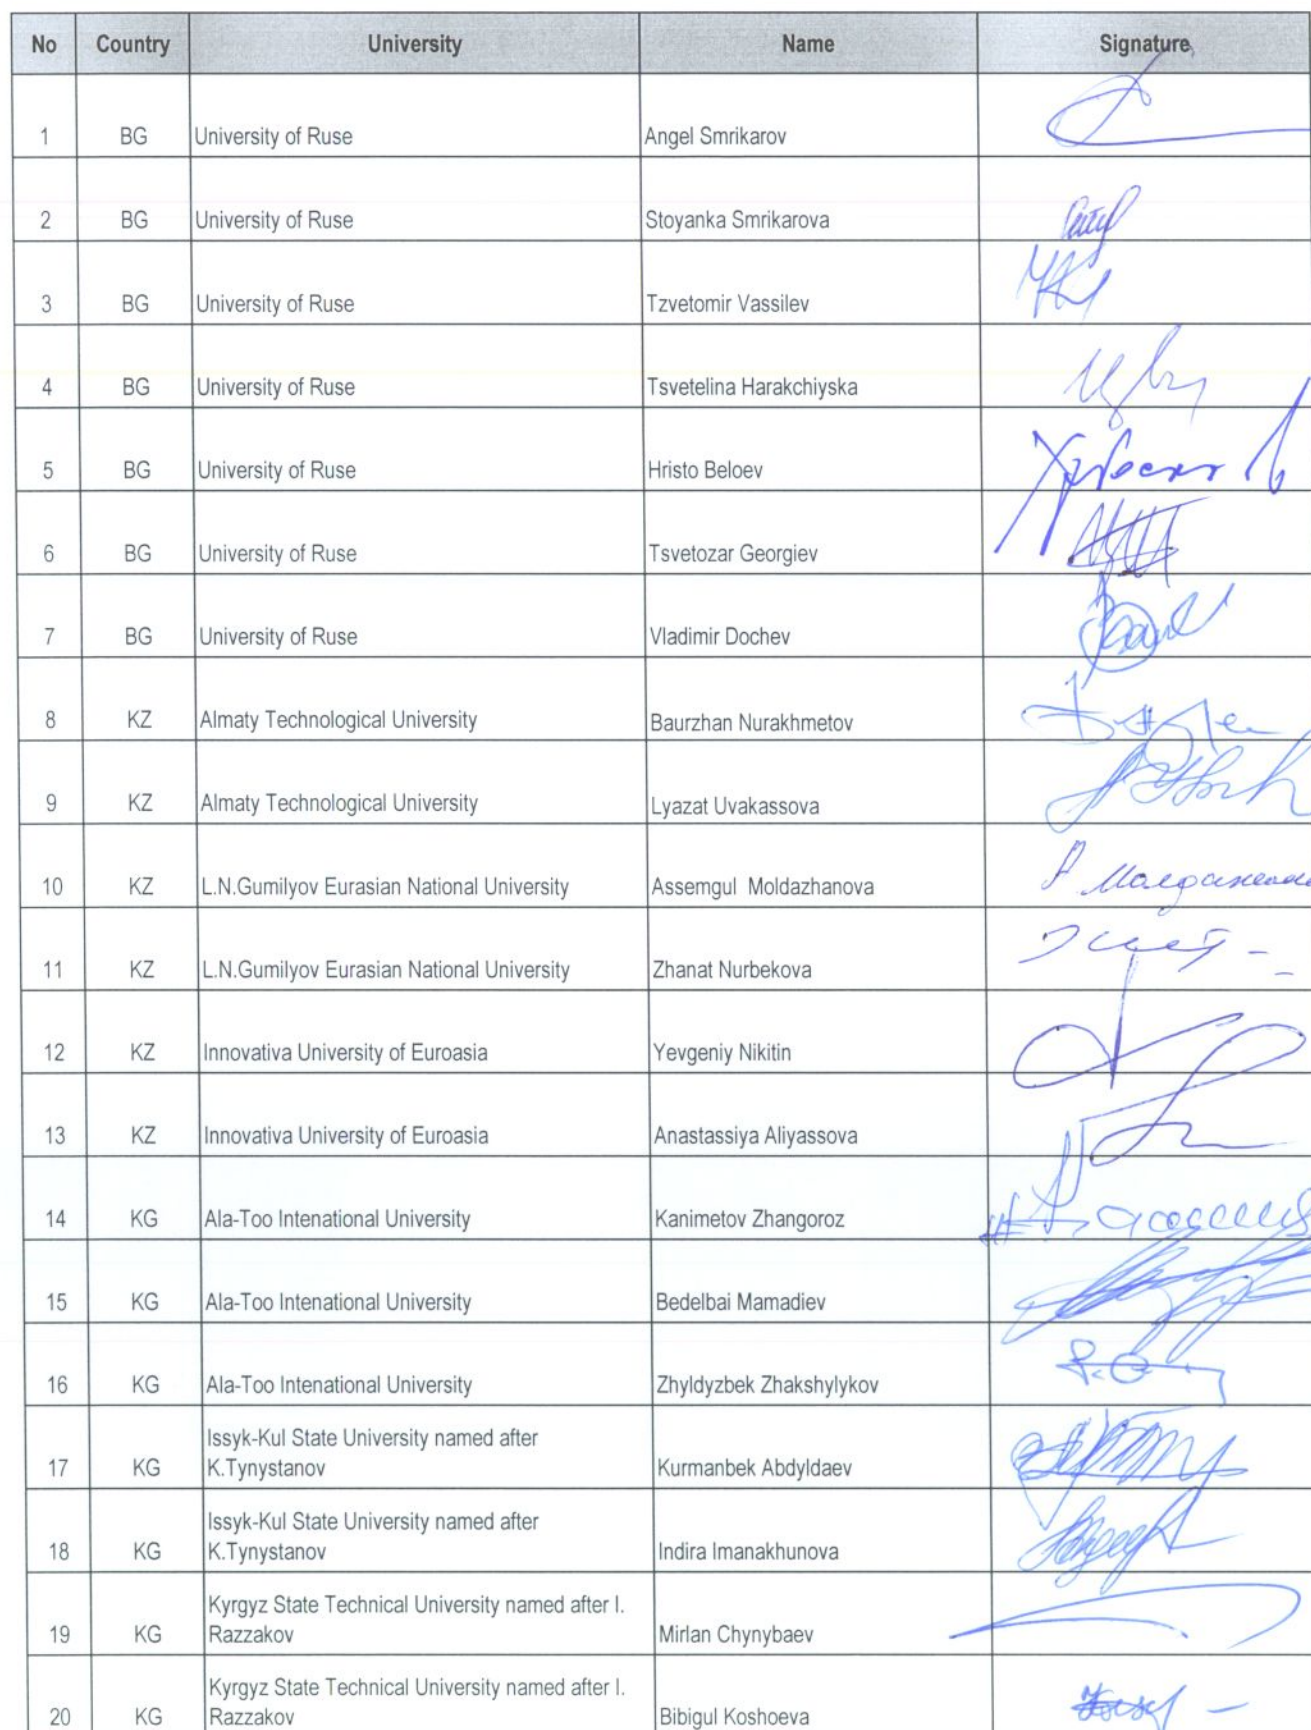 No Country University Name Signature
1 BG University of Ruse Angel Smrikarov
2 BG University of Ruse Stoyanka Smrikarova
3 BG University of Ruse Tzvetomir Vassilev
4 BG University of Ruse Tsvetelina Harakchiyska
5 BG University of Ruse Hristo Beloev
6 BG University of Ruse Tsvetozar Georgiev
7 BG University of Ruse Vladimir Dochev
8 KZ Almaty Technological University Baurzhan Nurakhmetov
9 KZ Almaty Technological University Lyazat Uvakassova
10 KZ L.N.Gumilyov Eurasian National University Assemgul Moldazhanova
11 KZ L.N.Gumilyov Eurasian National University Zhanat Nurbekova
12 KZ Innovativa University of Euroasia Yevgeniy Nikitin
13 KZ Innovativa University of Euroasia Anastassiya Aliyassova
14 KG Ala-Too Intenational University Kanimetov Zhangoroz
15 KG Ala-Too Intenational University Bedelbai Mamadiev
16 KG Ala-Too Intenational University Zhyldyzbek Zhakshylykov
Issyk-Kul State University named after
17 KG K.Tynystanov Kurmanbek Abdyldaev
Issyk-Kul State University named after
18 KG K.Tynystanov Indira Imanakhunova
Kyrgyz State Technical University named after I.
19 KG Razzakov Mirlan Chynybaev
Kyrgyz State Technical University named after I.
20 KG Razzakov Bibigul Koshoeva